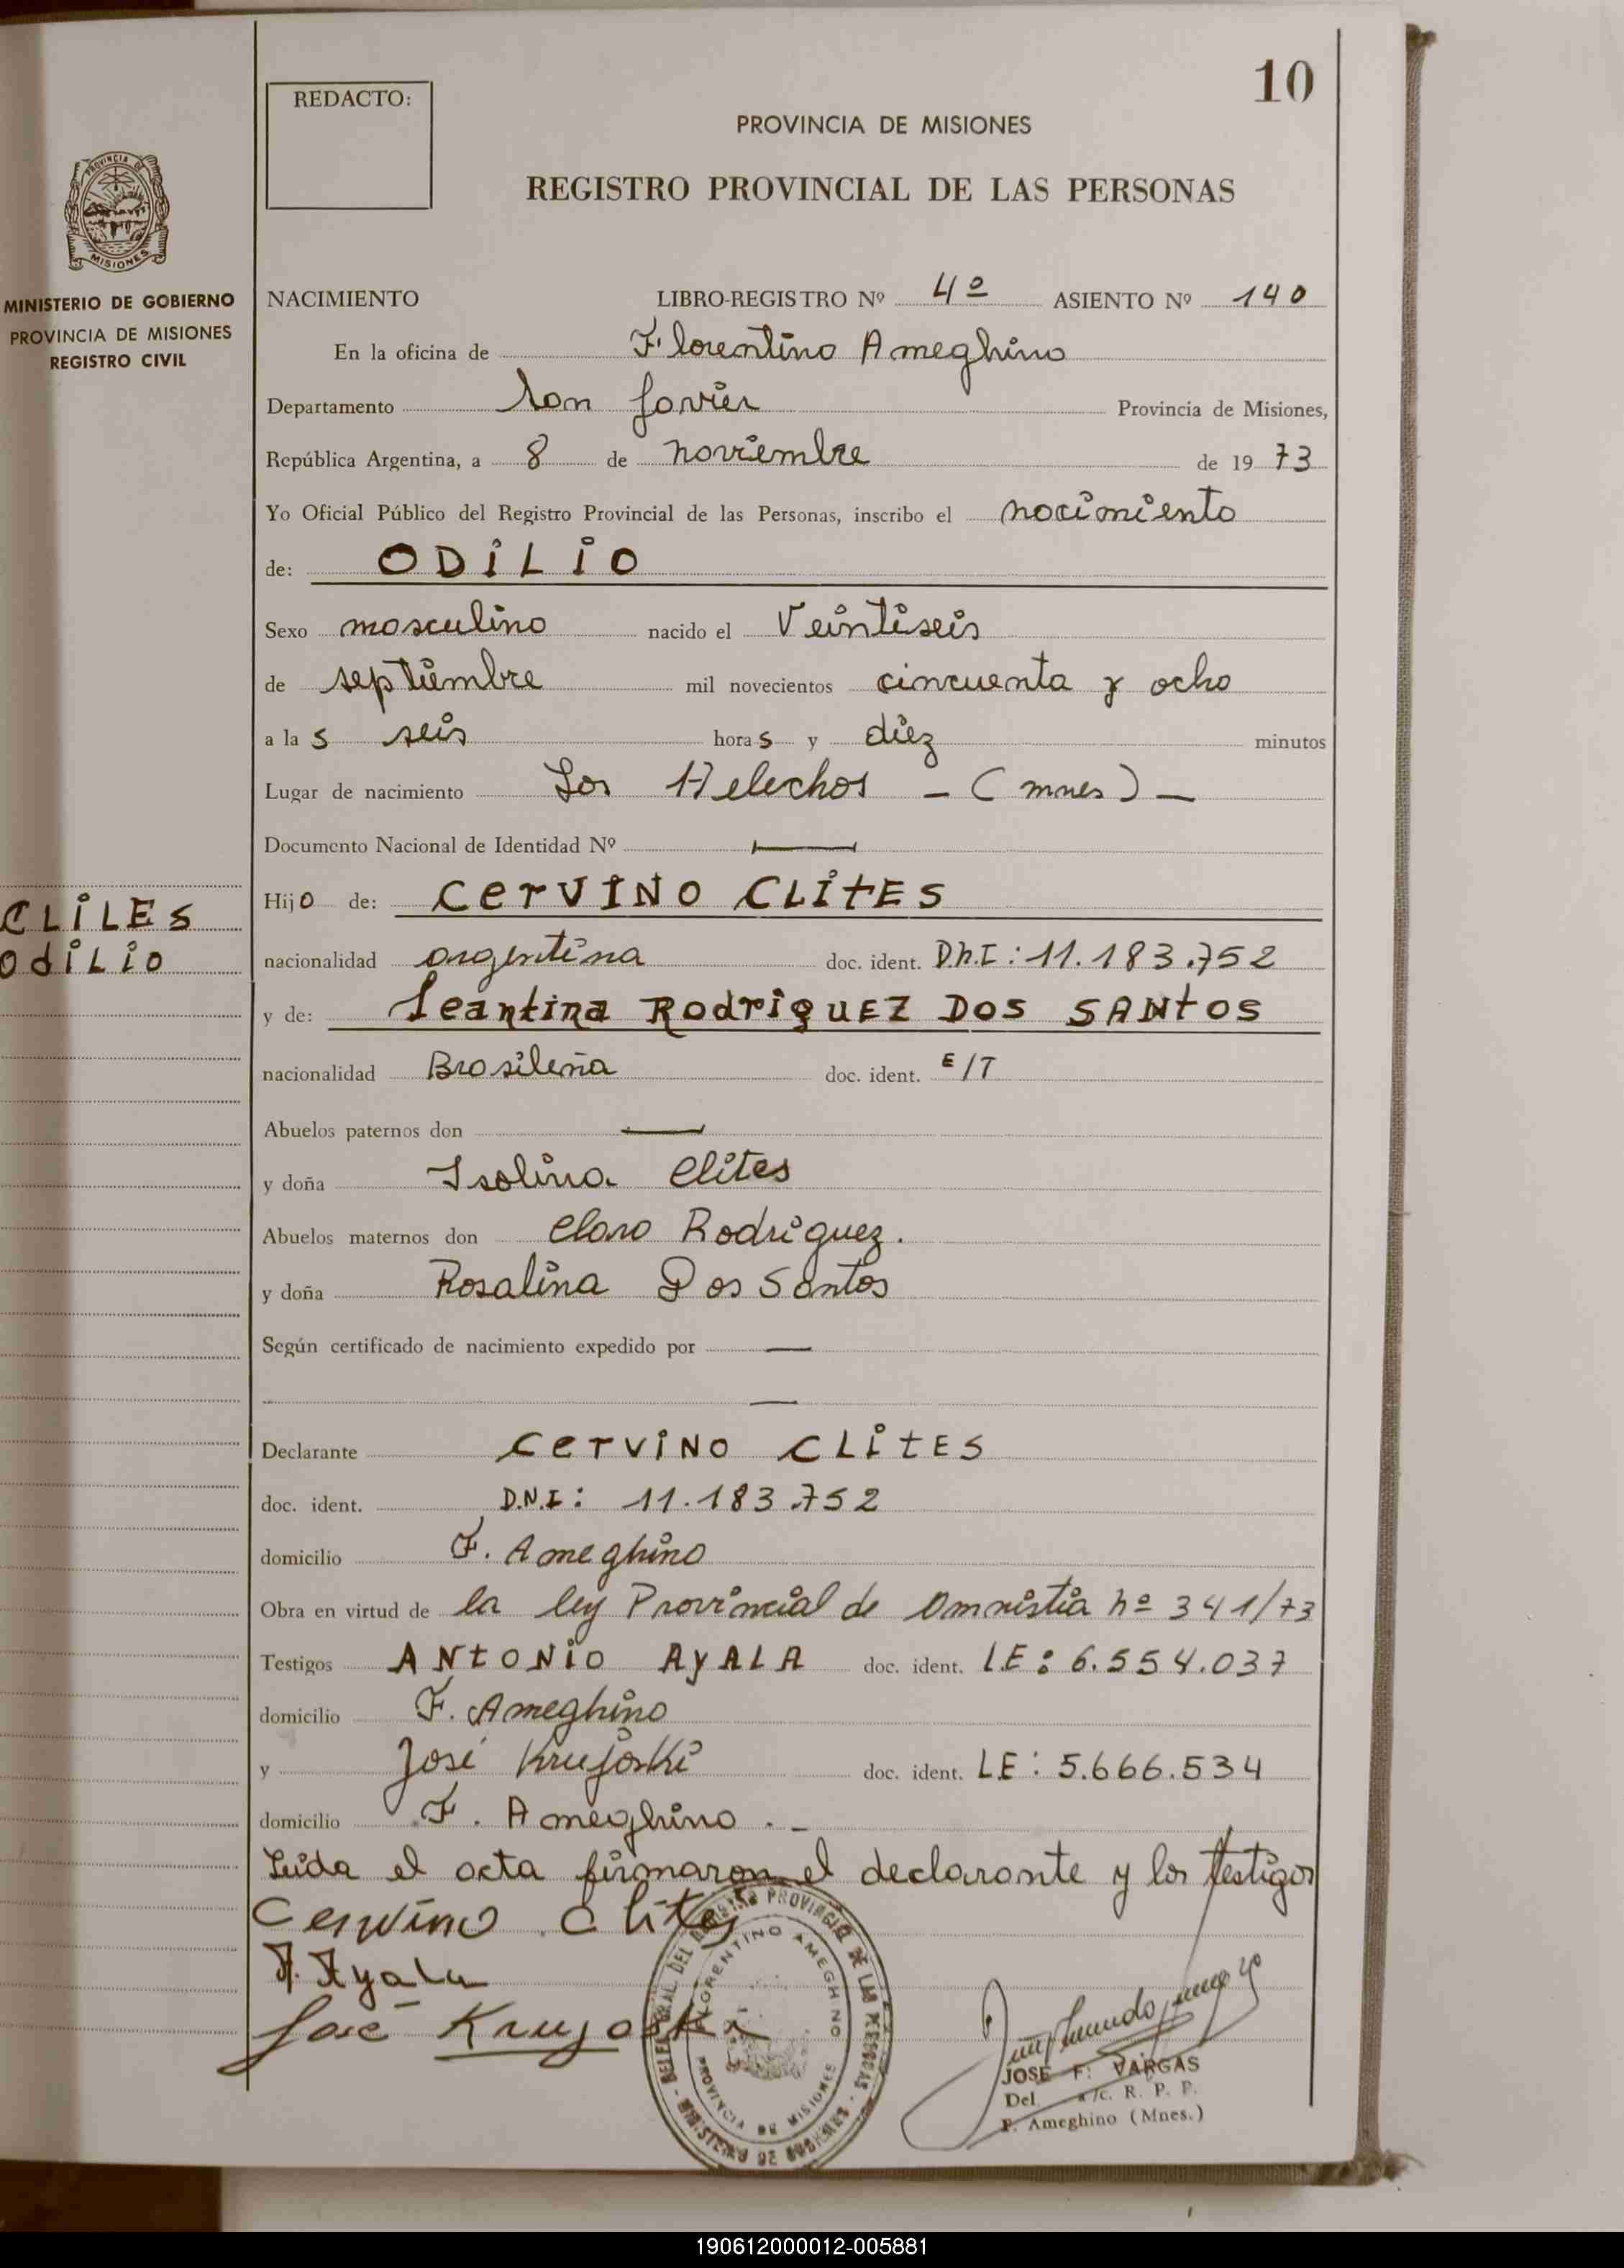 10
REDACTO:
PROVINCIA DE MISIONES
REGISTRO PROVINCIAL DE LAS PERSONAS
PROVINCIA DE
MISIONES
MINISTERIO DE GOBIERNO
PROVINCIA DE MISIONES
REGISTRO CIVIL
NACIMIENTO LIBRO-REGISTRO Nº 4º ASIENTO Nº 140
En la oficina de Florentino Ameghino
Departamento San Javier Provincia de Misiones,
República Argentina, a 8 de noviembre de 1973
Yo Oficial Público del Registro Provincial de las Personas, inscribo el nacimiento
de: ODILIO
Sexo masculino nacido el Veintiseis
de septiembre mil novecientos cincuenta y ocho
a las seis horas y diez minutos
Lugar de nacimiento Los Helechos - (mnes) -
Documento Nacional de Identidad Nº —
Hijo de: CERVINO CLITES
CLILES
ODILIO
nacionalidad argentina doc. ident. D.N.I: 11.183.752
y de: Leantina RODRIGUEZ DOS SANTOS
nacionalidad Brasileña doc. ident. E/T
Abuelos paternos don —
y doña Isolina Clites
Abuelos maternos don Claro Rodriguez.
y doña Rosalina Dos Santos
Según certificado de nacimiento expedido por —
—
Declarante CERVINO CLITES
doc. ident. D.N.I: 11.183.752
domicilio F. Ameghino
Obra en virtud de la ley Provincial de Omnistia nº 341/73
Testigos ANTONIO AYALA doc. ident. LE: 6.554.037
domicilio F. Ameghino
y José Krujoski doc. ident. LE: 5.666.534
domicilio F. Ameghino.-
Leida el acta firmaron el declarante y los testigos
Cervino Clites
A. Ayala
José Krujoski
REGISTRO PROVINCIAL DE LAS PERSONAS
FLORENTINO AMEGHINO
PROVINCIA DE MISIONES
MINISTERIO DE GOBIERNO
JOSE F. VARGAS
Del. a/c. R. P. P.
F. Ameghino (Mnes.)
190612000012-005881